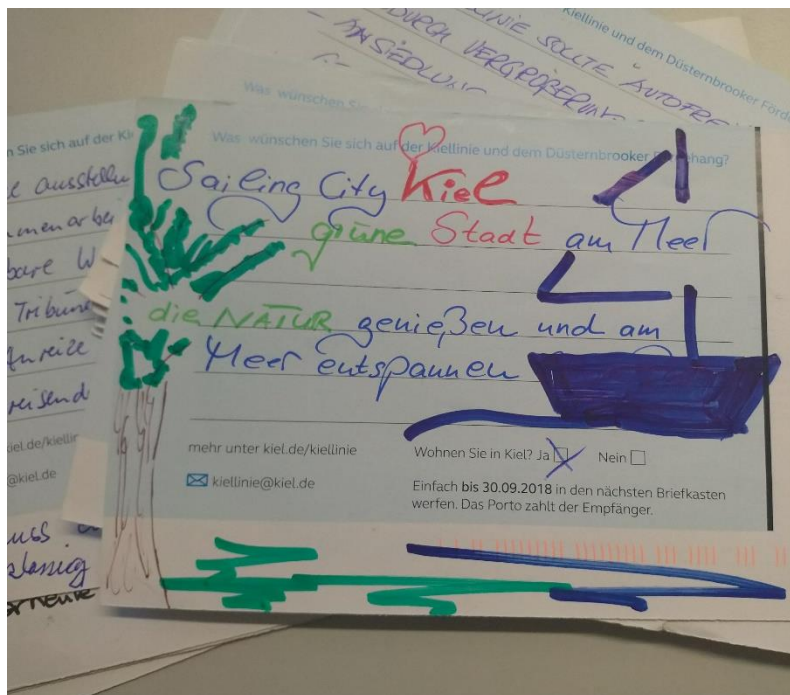 Kiellinie und dem Düsternbrooker Förde
LINIE SOLLTE AUTOFRE
DURCH VERGRÖßERUN
ANSIEDLUNG
Was wünschen Sie
n Sie sich auf der Ki
e ausstellen
mmenarbei
bare W
Tribüne
Anreize
reisend
iel.de/kiellin
@kiel.de
uss
klassig
Was wünschen Sie sich auf der Kiellinie und dem Düsternbrooker hang?
Sailing City Kiel
grüne Stadt am Meer
die NATUR genießen und am
Meer entspannen
mehr unter kiel.de/kiellinie
Wohnen Sie in Kiel? Ja Nein
kiellinie@kiel.de
Einfach bis 30.09.2018 in den nächsten Briefkasten
werfen. Das Porto zahlt der Empfänger.